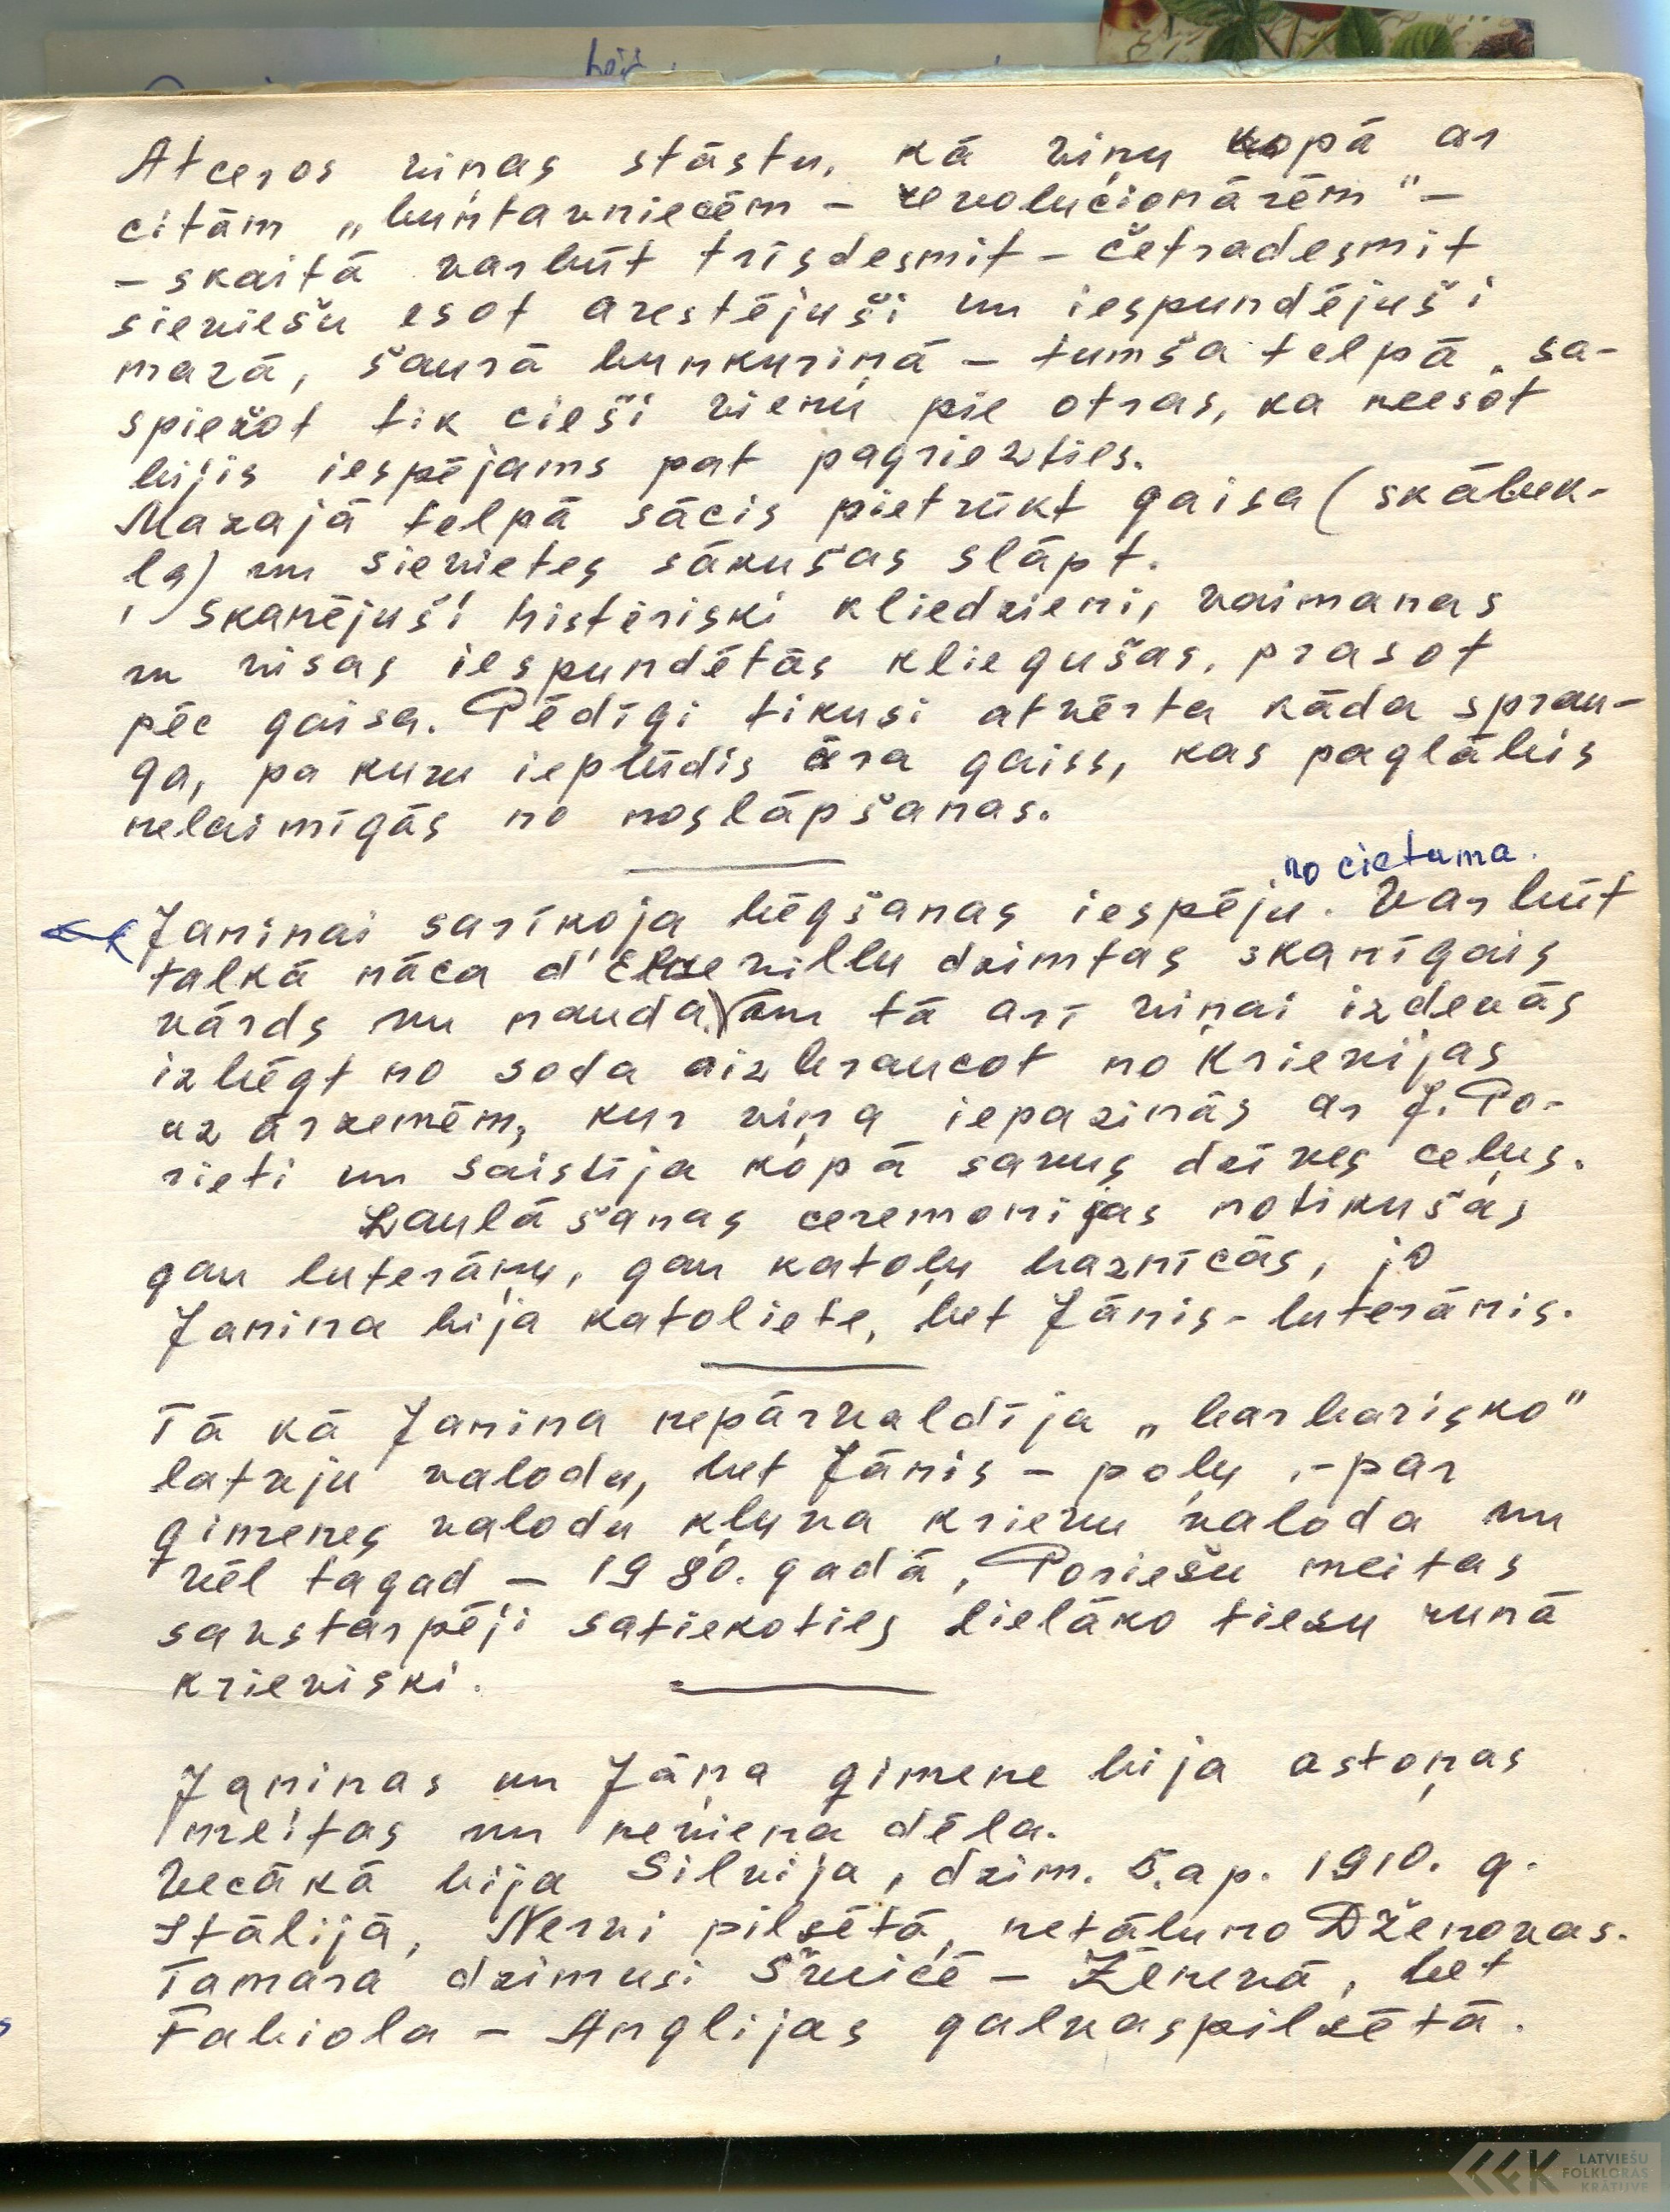 Atceros viņas stāstu, kā viņu kopā ar
citām „buntavniecēm – revolucionārēm" –
– skaitā varbūt trīsdesmit – četradesmit
sieviešu esot arestējuši un iespundējuši
mazā, šaurā bunkuriņā – tumša telpā, sa-
spiežot tik cieši vienu pie otras, ka neesot
bijis iespējams pat pagriezties.
Mazajā telpā sācis pietrūkt gaisa (skābek-
ļa) un sievietes sākušas slāpt.
Skanējuši histēriski kliedzieni, vaimanas
un visas iespundētās kliegušas, prasot
pēc gaisa. Pēdīgi tikusi atvērta kāda sprau-
ga, pa kuru ieplūdis āra gaiss, kas paglābis
nelaimīgās no noslāpšanas.
no cietuma.
Janinai sarīkoja bēgšanas iespēju. Varbūt
talkā nāca villu dzimtas skanīgais
vārds un nauda, un tā arī viņai izdevās
izbēgt no soda aizbraucot no Krievijas
uz ārzemēm, kur viņa iepazinās ar J. Po-
rieti un saistīja kopā savus dzīves ceļus.
Laulāšanas ceremonijas notikušas
gan luterāņu, gan katoļu baznīcās, jo
Janina bija katoliete, bet Jānis – luterānis.
Tā kā Janina nepārvaldīja „barbarisko"
latvju valodu, bet Jānis – poļu, – par
ģimenes valodu kļuva krievu valoda un
vēl tagad – 1980. gadā, Poriešu meitas
savstarpēji satiekoties lielāko tiesu runā
krieviski.
Janinas un Jāņa ģimene bija astoņas
meitas un neviena dēla.
Vecākā bija Silvija, dzim. 5. ap. 1910. g.
Itālijā, Nervi pilsētā, netālu no Dženovas.
Tamāra dzimusi Šveicē – Ženevā, bet
Fabiola – Anglijas galvaspilsētā.
LATVIEŠU
FOLKLORAS
KRĀTUVE